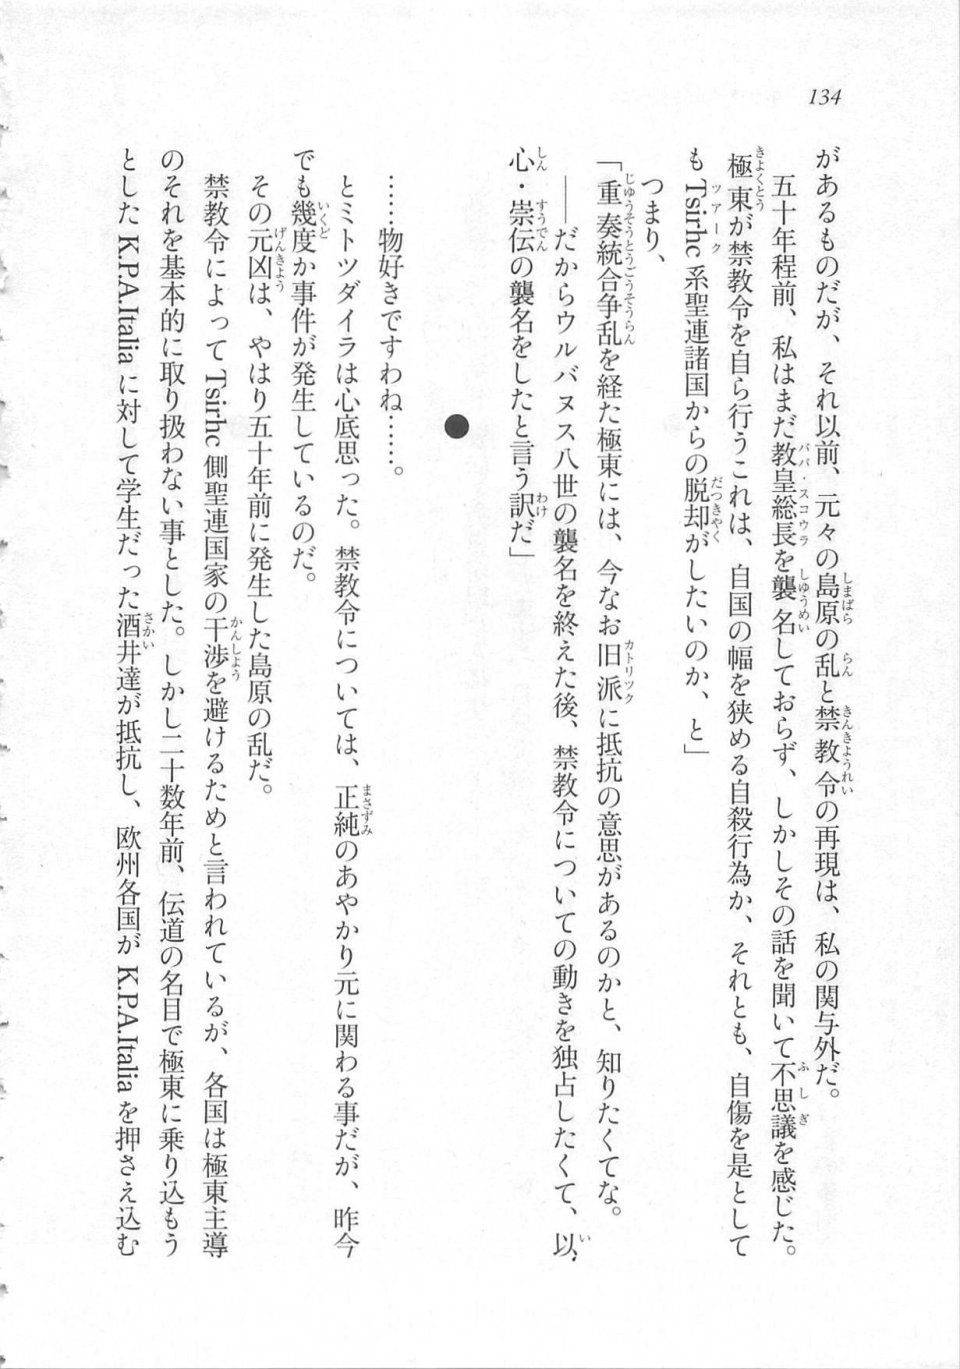 134
があるものだが、それ以前、元々の島原の乱と禁教令の再現は、私の関与外だ。
五十年程前、私はまだ教皇総長を襲名しておらず、しかしその話を聞いて不思議を感じた。
極東が禁教令を自ら行うこれは、自国の幅を狭める自殺行為か、それとも、自傷を是として
も Tsirhc 系聖連諸国からの脱却がしたいのか、と」
つまり、
「重奏統合争乱を経た極東には、今なお旧派に抵抗の意思があるのかと、知りたくてな。
――だからウルバヌス八世の襲名を終えた後、禁教令についての動きを独占したくて、以
心・崇伝の襲名をしたと言う訳だ」
●
……物好きですわね……。
とミトツダイラは心底思った。禁教令については、正純のあやかり元に関わる事だが、昨今
でも幾度か事件が発生しているのだ。
その元凶は、やはり五十年前に発生した島原の乱だ。
禁教令によって Tsirhc 側聖連国家の干渉を避けるためと言われているが、各国は極東主導
のそれを基本的に取り扱わない事とした。しかし二十数年前、伝道の名目で極東に乗り込もう
とした K.P.A.Italia に対して学生だった酒井達が抵抗し、欧州各国が K.P.A.Italia を押さえ込む